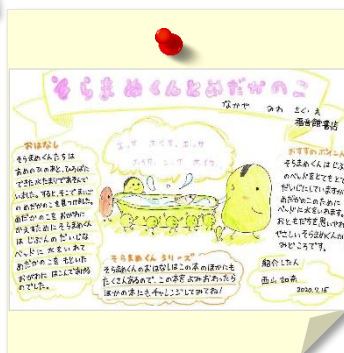 そらまめくんとめだかのこ
なかや みわ さく・え
福音館書店
おはなし
そらまめくんたちは
あめのひのあと、ひろばに
できた水たまりであそんで
いました。すると、そこでまいご
のめだかのこを見つけました。
めだかのこを おがわに
かえすためにそらまめくん
は じぶんの だいじな
ベッドに 水をいれて
めだかのこを そだいた
おがわに はこんであげる
のでした。
エッサ ホイサ、エッサ
ホイサ、エッサ ホイサ、
おすすめポイント
そらまめくんはじぶ
のベッドをとてもと
だいじにしていますが
めだかのこのために
ベッドに水をいれます。
おともだちを思いやれ
やさしいそらまめくんが
みどころです。
そらまめくんシリーズ
そらまめくんのおはなしはこの本のほかにも
たくさんあるので、この本をよみおわったら
ほかの本にもチャレンジしてみてね!
紹介した人
西山 知奈
2020.7.15